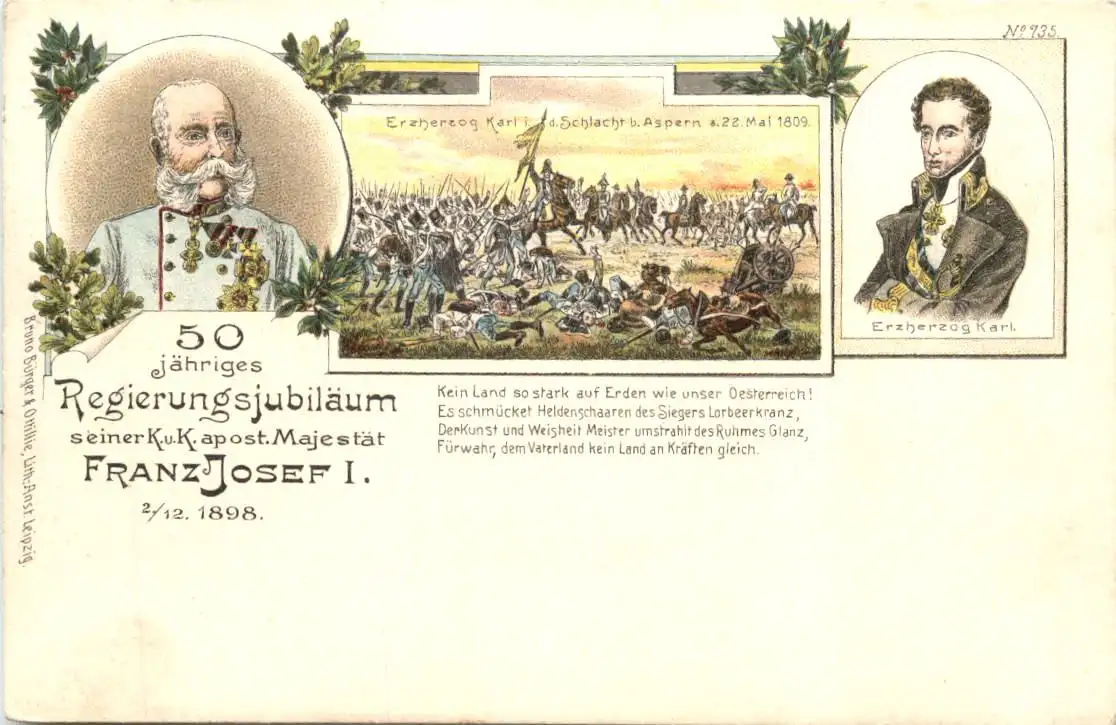 Nº 935
Erzherzog Karl i. d. Schlacht b. Aspern a. 22. Mai 1809.
Erzherzog Karl.
50
jähriges
Regierungsjubiläum
seiner K. u. K. apost. Majestät
FRANZ JOSEF I.
2/12. 1898.
Kein Land so stark auf Erden wie unser Oesterreich!
Es schmücket Heldenschaaren des Siegers Lorbeerkranz,
Der Kunst und Weisheit Meister umstrahlt des Ruhmes Glanz,
Fürwahr, dem Vaterland kein Land an Kräften gleich.
Bruno Bürger & Ottilie, Lith. Anst. Leipzig.